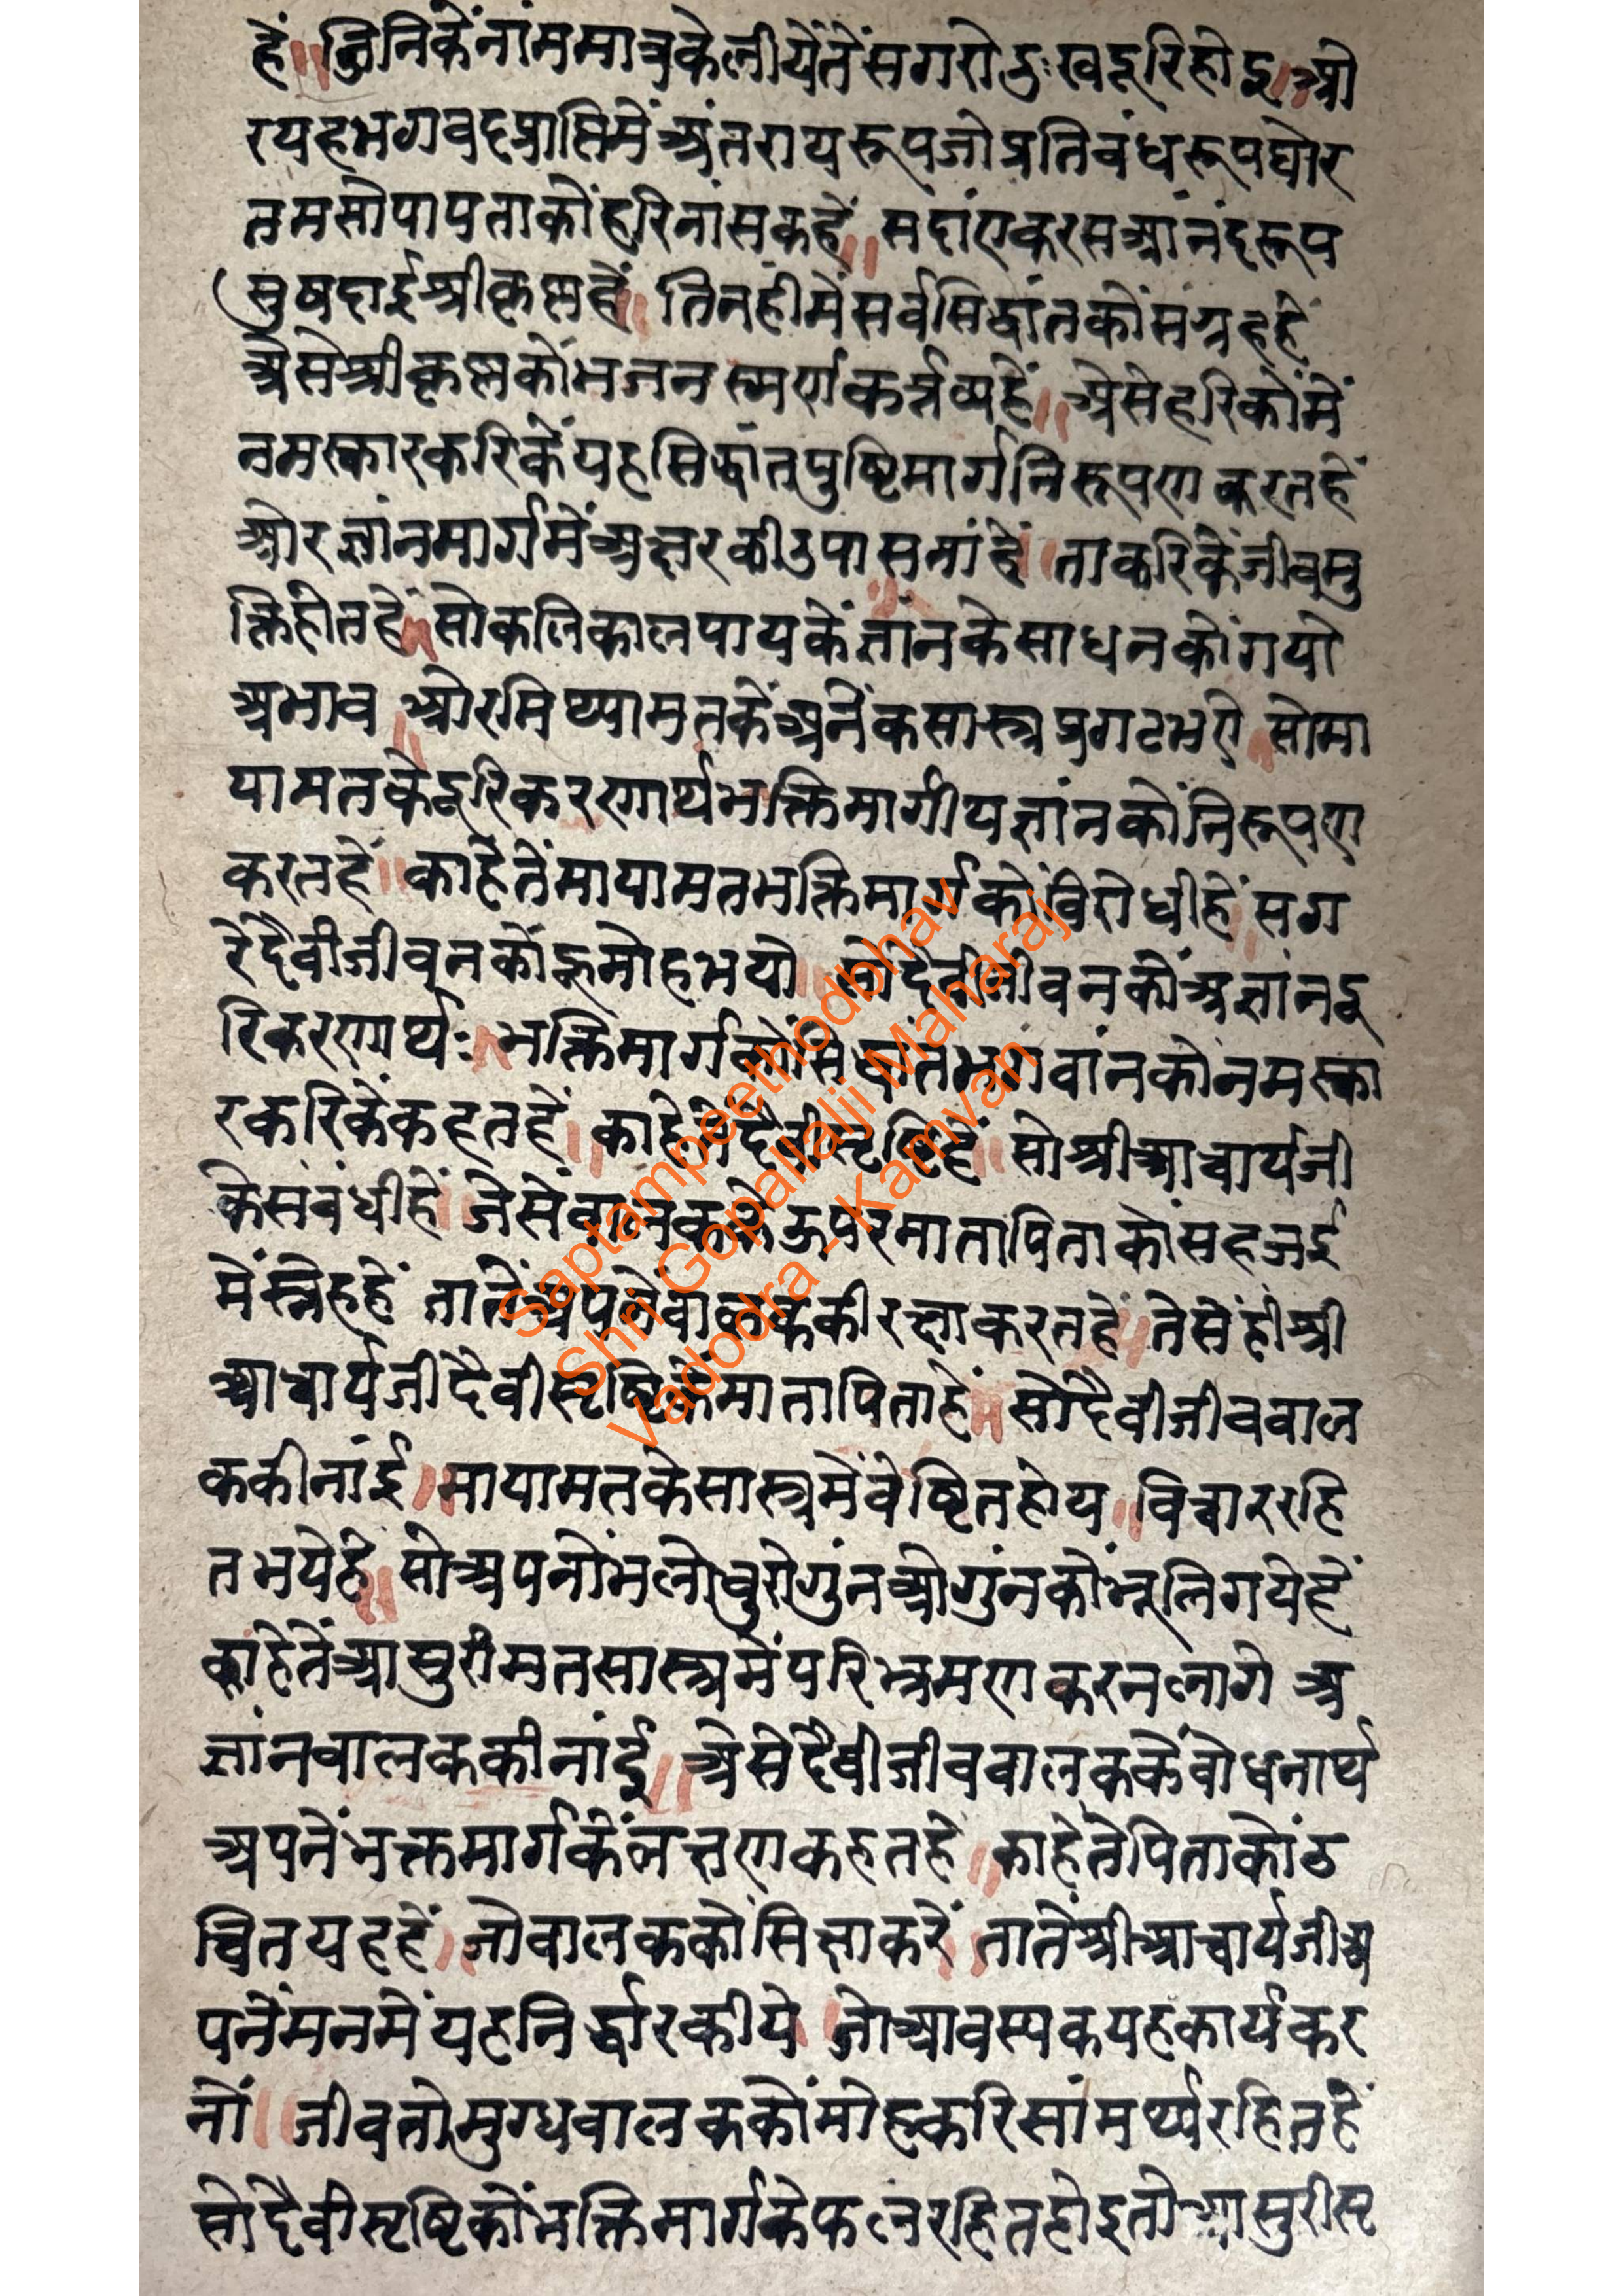 हें॥ तिनिकेंनांममात्रकेलीयेंतेंसगरोदुःखदूरिहोइ॥ओ
रयहभगवदप्राप्तिमेंअंतरायरूपजोप्रतिवंधरूपघोर
तमसोपापताकोंहरिनांसकहें॥ सदांएकरसआंनंदरूप
सुषदाईश्रीकृष्णहें॥ तिनहीमेंसर्वसिद्धांतकोंसंग्रहहें
अेसेश्रीकृष्णकोंभजनस्मर्णकर्त्तव्यहें॥ अेसेहरिकोंमें
नमस्कारकरिकेंयहसिद्धांतपुष्टिमार्गनिरूपणकरतहें
ओरज्ञांनमार्गमेंअक्षरकीउपासनांहें॥ ताकरिकेंजीवमु
क्तिहोतहें॥सोकलिकालपायकेंज्ञांनकेसाधनकोंगयो
अभाव॥ओरमिथ्यामतकेंअनेंकसास्त्रप्रगटभए॥सोमा
यामतकेदूरिकरणार्थभक्तिमार्गीयज्ञांनकोंनिरूपण
करतहें॥ काहेतेंमायामतभक्तिमार्गकोंविरोधीहें॥सग
रेदैवीजीवनकोंहूमोहभयो॥ सोदैवीजीवनकोंअज्ञांनदू
रिकरणार्थः॥ भक्तिमार्गकोंसिद्धांतभगवांनकोंनमस्का
रकरिकेंकहतहें॥ काहेतेंदैवीसृष्टिहें॥ सोश्रीआचार्यजी
केसंबंधीहें॥ जेसेंवालककेऊपरमातापिताकोंसहजई
मेंस्नेहहें तातेंअपनेंवालककीरक्षाकरतहें॥ तेसेंहीश्री
आचार्यजीदैवीसृष्टिकेंमातापिताहें॥ सोदैवीजीववाल
ककीनांई॥मायामतकेसास्त्रमेंवेष्टितहोय॥विचाररहि
तभयेहें॥ सोअपनोंभलोवुरोगुंनओगुंनकोंभूलिगयेहें
काहेतेंआसुरीमतसास्त्रमेंपरिभ्रमणकरनलागे अ
ज्ञांनवालककीनांई॥ अेसेदैवीजीववालककेंवोधनार्थ
अपनेंभक्तमार्गकेंलक्षणकहतहें॥ काहेतेपिताकोंउ
चितयहहें॥जोवालककोंसिक्षाकरें॥तातेंश्रीआचार्यजीअ
पनेंमनमेंयहनिर्द्धारकीये॥ जोआवस्यकयहकार्यकर
नों॥ जीवतोमुग्धवालककोंमोहकरिसांमर्थ्यरहितहें
सोदैवीसृष्टिकोंभक्तिमार्गकेफलरहितहोइतोआसुरीसृ
Saptampeethodbhav
Shri Gopallalji Maharaj
Vadodra - Kamvan